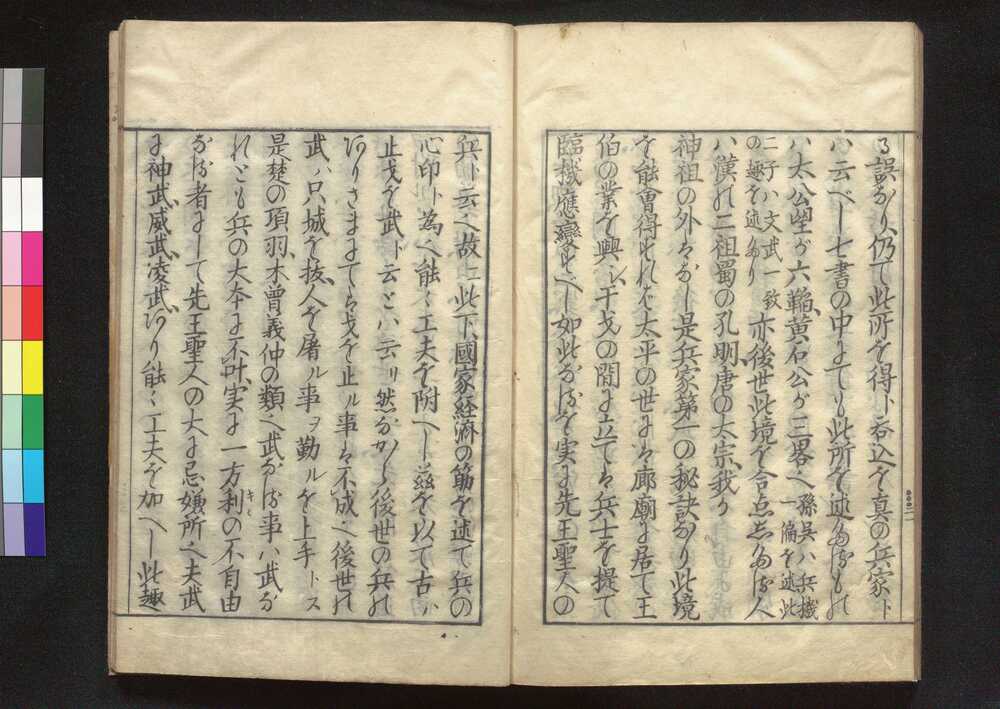 る誤なり仍て此所を得ト呑込を真の兵家ト
ハ云べし七書の中にても此所を述たるもの
ハ太公望が六韜黄石公が三畧也孫呉ハ兵機一偏を述此
二子ハ文武一致の趣を述たり亦後世此境を合点したる人
ハ漢の二祖蜀の孔明唐の太宗我が
神祖の外なし是兵家第一の秘訣なり此境
を能會得すれば太平の世にハ廊廟に居て王
伯の業を興し干戈の間に立てハ兵士を提て
臨機應變すべし如此なるを実に先王聖人の
兵ト云也故ニ此下國家経済の筋を述て兵の
心印ト為也能々工夫を附べし茲を以て古ハ
止戈を武ト云とハ云リ然ながら後世の兵の
ありさまにてハ戈を止ル事ハ不成也後世の
武ハ只城を抜人を屠ル事ヲ勤ルを上手トス
是楚の項羽木曾義仲の類也武なる事ハ武な
れとも兵の大本に不叶実に一方利の不自由
なる者にして先王聖人の大に忌嫌所也夫武
に神武威武凌武あり能々工夫を加べし此趣